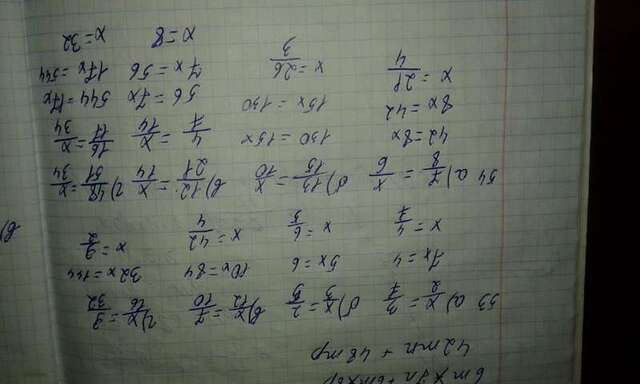 42mn + 48mp
53 а) x/2 = 2/7 б) x/3 = 2/5 в) x/12 = 7/10 г) x/16 = 9/32
7x = 4 5x = 6 10x = 84 32x = 144
x = 4/7 x = 6/5 x = 42/4 x = 9/2
в)
54 а) 7/8 = x/6 б) 13/15 = x/10 в) 12/21 = x/14 г) 48/51 = x/34
42 = 8x 130 = 15x 4/7 = x/14 16/17 = x/34
8x = 42 15x = 130 56 = 7x 544 = 17x
x = 21/4 x = 26/3 7x = 56 17x = 544
x = 8 x = 32